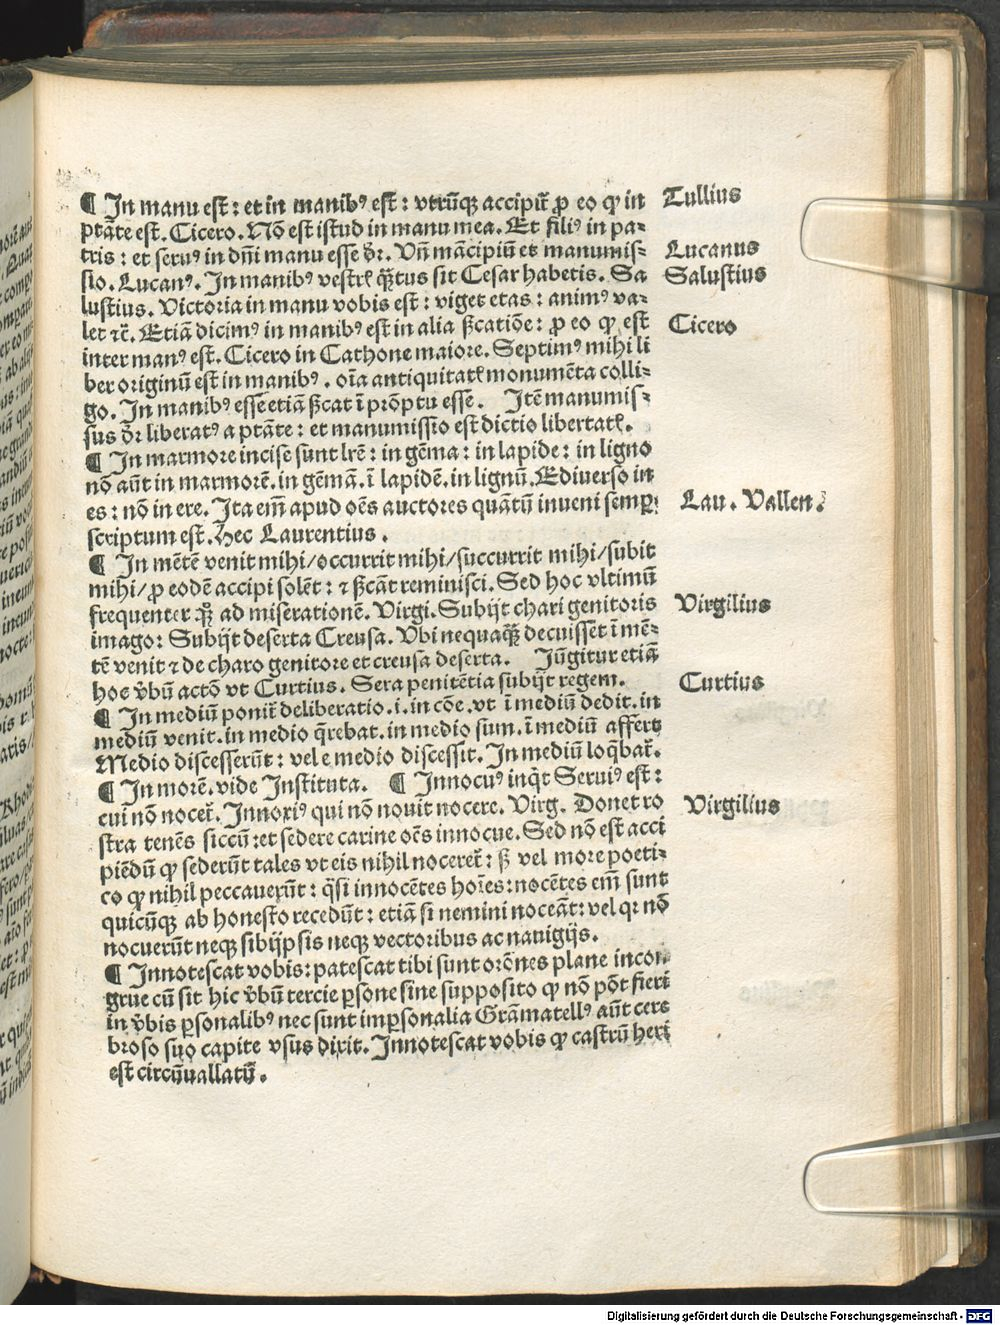 ¶ In manu est: et in manibꝰ est: vtrũqꝫ accipit᷑ ꝓ eo ꝙ in
ptãte est. Cicero. Nõ est istud in manu mea. Et filiꝰ in pa⸗
tris: et seruꝰ in dñi manu esse dr̃. Vñ mãcipiũ et manumis⸗
sio. Lucanꝰ. In manibꝰ vestrꝭ q̃tus sit Cesar habetis. Sa
lustius. Victoria in manu vobis est: viget etas: animꝰ va⸗
let ⁊c̃. Etiã dicimꝰ in manibꝰ est in alia ß̃catiõe: ꝓ eo ꝙ est
inter manꝰ est. Cicero in Cathone maiore. Septimꝰ mihi li
ber originũ est in manibꝰ. oĩa antiquitatꝭ monumẽta colli⸗
go. In manibꝰ esse etiã ß̃cat ĩ prõptu esse. Itẽ manumis⸗
sus dr̃ liberatꝰ a ptãte: et manumissio est dictio libertatꝭ.
¶ In marmore incise sunt lr̃e: in gẽma: in lapide: in ligno
nõ aũt in marmorẽ. in gẽmã. ĩ lapidẽ. in lignũ. Ediuerso in
es: nõ in ere. Ita em̃ apud oẽs auctores quãtũ inueni semꝑ
scriptum est. Hec Laurentius.
¶ In mẽtẽ venit mihi/occurrit mihi/succurrit mihi/subit
mihi/ꝓ eodẽ accipi solẽt: ⁊ ß̃cãt reminisci. Sed hoc vltimũ
frequenter qꝫ̃ ad miserationẽ. Virgi. Subijt chari genitoris
imago: Subijt deserta Creusa. Vbi nequaqꝫ̃ decuisset ĩ mẽ⸗
tẽ venit ⁊ de charo genitore et creusa deserta. Iũgitur etiã
hoc v̾bũ actõ vt Curtius. Sera penitẽtia subijt regem.
¶ In mediũ ponit᷑ deliberatio. i. in cõe. vt ĩ mediũ dedit. in
mediũ venit. in medio q̃rebat. in medio sum. ĩ mediũ affert
Medio discesserũt: vel e medio discessit. In mediũ loq̃bat᷑.
¶ In morẽ. vide Instituta. ¶ Innocuꝰ inq̃t Seruiꝰ est:
cui nõ nocet᷑. Innoxiꝰ qui nõ nouit nocere. Virg. Donet ro
stra tenẽs siccũ: et sedere carine oẽs innocue. Sed nõ est acci
piẽdũ ꝙ sederũt tales vt eis nihil noceret᷑: ß̃ vel more poeti⸗
co ꝙ nihil peccauerũt: q̃si innocẽtes hoĩes: nocẽtes em̃ sunt
quicũqꝫ ab honesto recedũt: etiã si nemini noceãt: vel qꝛ nõ
nocuerũt neqꝫ sibijpsis neqꝫ vectoribus ac nauigijs.
¶ Innotescat vobis: patescat tibi sunt orõnes plane incon
grue cũ sit hic v̾bũ tercie ꝑsone sine supposito ꝙ nõ põt fieri
in v̾bis ꝑsonalibꝰ nec sunt imꝑsonalia Grãmatellꝰ aũt cere
broso suo capite vsus dixit. Innotescat vobis ꝙ castrũ heri
est circũuallatũ.
Tullius
Lucanus
Salustius
Cicero
Lau. Vallen.
Virgilius
Curtius
Virgilius
Digitalisierung gefördert durch die Deutsche Forschungsgemeinschaft - DFG